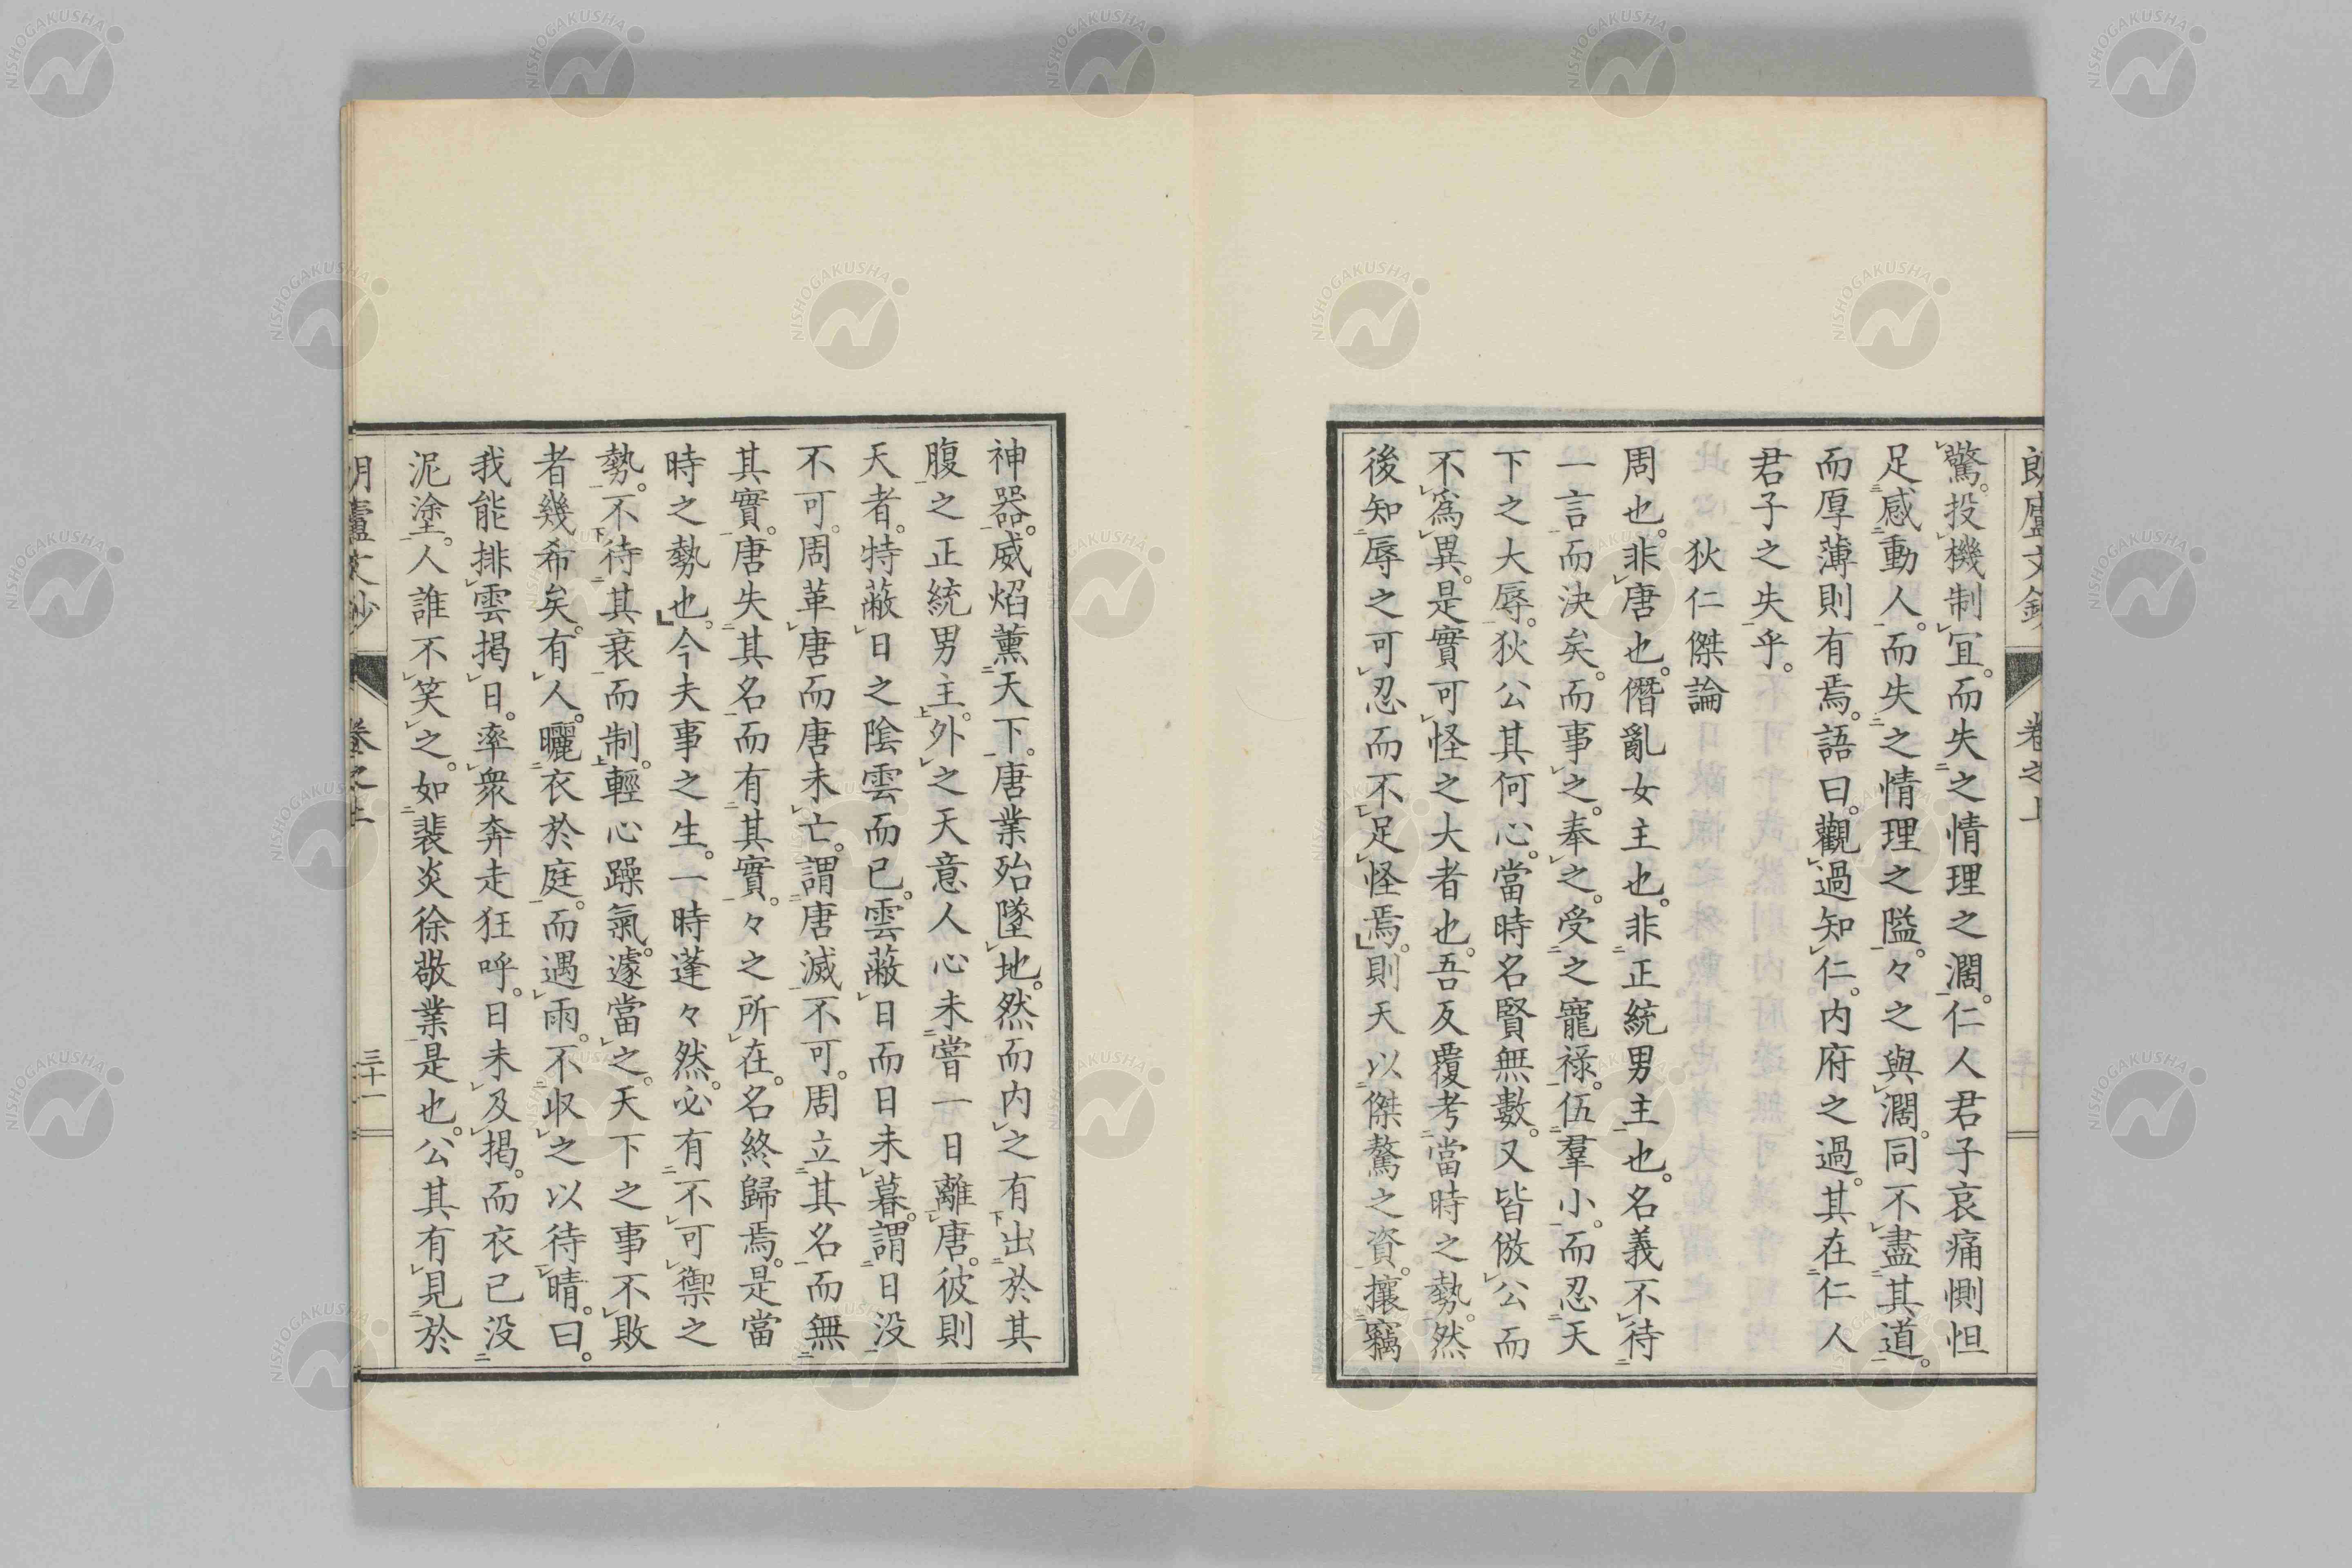 驚。投機制宜。而失之情理之濶。仁人君子哀痛惻怛
足感動人。而失之情理之隘。々之與濶。同不盡其道。
而厚薄則有焉。語曰。觀過知仁。内府之過。其在仁人
君子之失乎。
狄仁傑論
周也。非唐也。僭亂女主也。非正統男主也。名義不待
一言而決矣。而事之。奉之。受之寵祿。伍羣小。而忍天
下之大辱。狄公其何心。當時名賢無數。又皆倣公而
不爲異。是實可怪之大者也。吾反覆考當時之勢。然
後知辱之可忍而不足怪焉。則天以傑驁之資。攘竊
神器。威焰薫天下。唐業殆墜地。然而内之有出於其
腹之正統男主。外之天意人心未嘗一日離唐。彼則
天者。特蔽日之陰雲而已。雲蔽日而日未暮。謂日没
不可。周革唐而唐未亡。謂唐滅不可。周立其名而無
其實。唐失其名而有其實。々之所在。名終歸焉。是當
時之勢也。今夫事之生。一時蓬々然。必有不可禦之
勢。不待其衰而制。輕心躁氣。遽當之。天下之事不敗
者幾希矣。有人。曬衣於庭。而遇雨。不收之以待晴。曰。
我能排雲掲日。率衆奔走狂呼。日未及掲。而衣已没
泥塗。人誰不笑之。如裴炎徐敬業是也。公其有見於
朗廬文鈔
卷之上
三十一